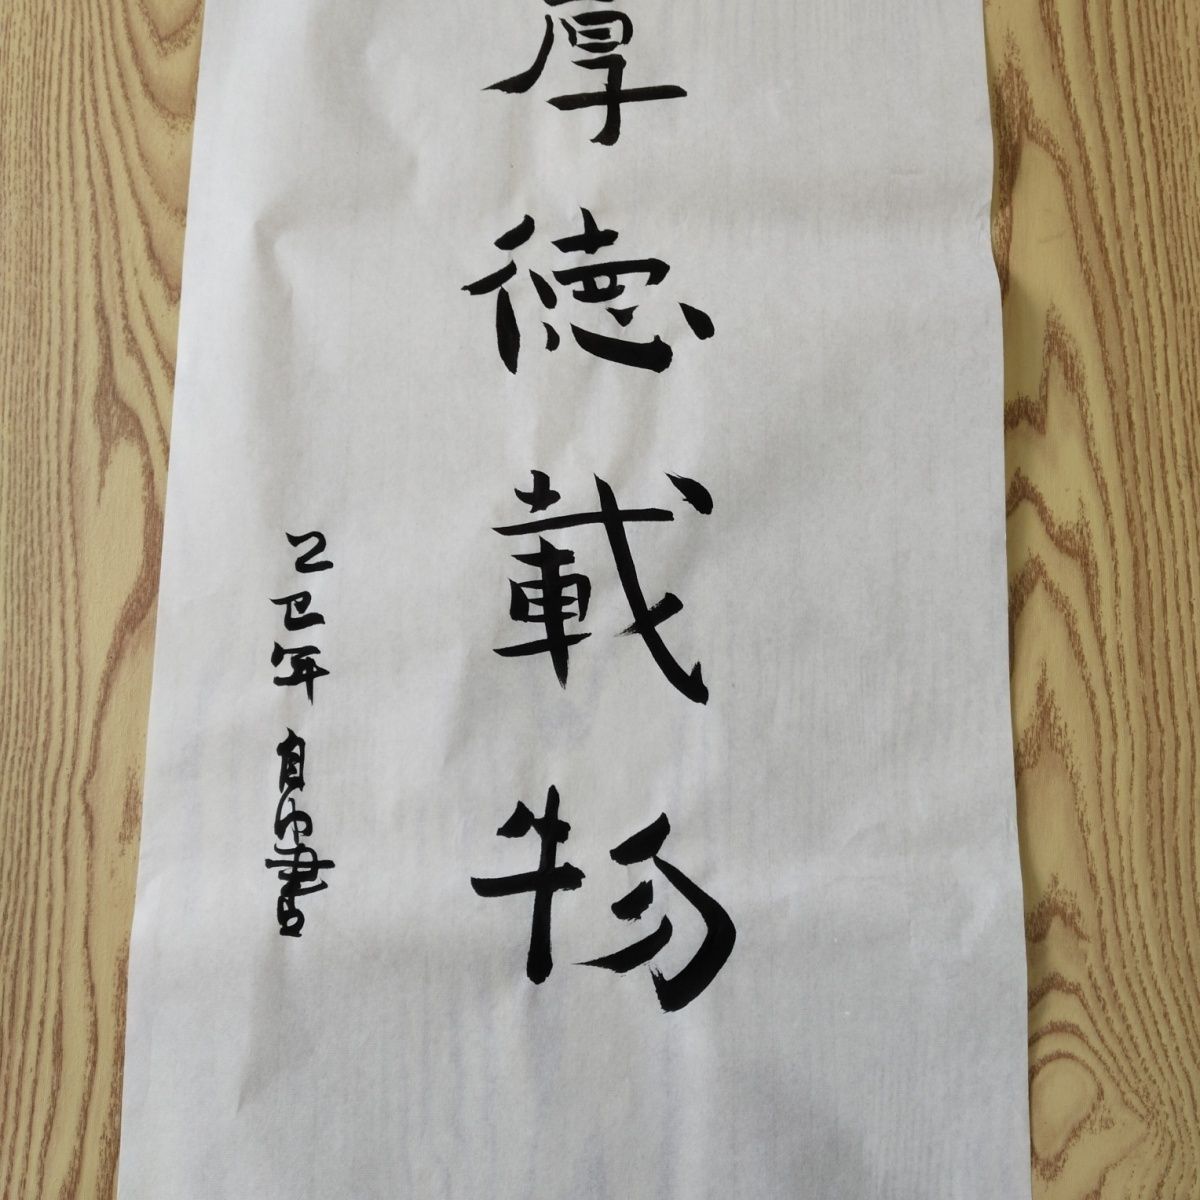 厚德載物
乙巳年 自中書